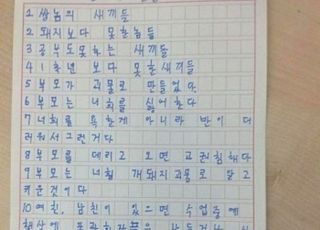 1 쌍놈의 새끼들
2 돼지보다 못한놈들
3 공부도못하는 새끼들
4 1학년 보다 못할새끼들
5 부모가 괴물로 만들었다.
6 부모는 너희를 싫어한다
7 너희를 욕한게 아니라 반이 더
러워서그런거다
8 부모를 데리고 오면 교권침해다
9 부모는 너흴 개돼지괴물로 알고
키운것이다
10 여친, 남친이 있으면 수업중에
책상에